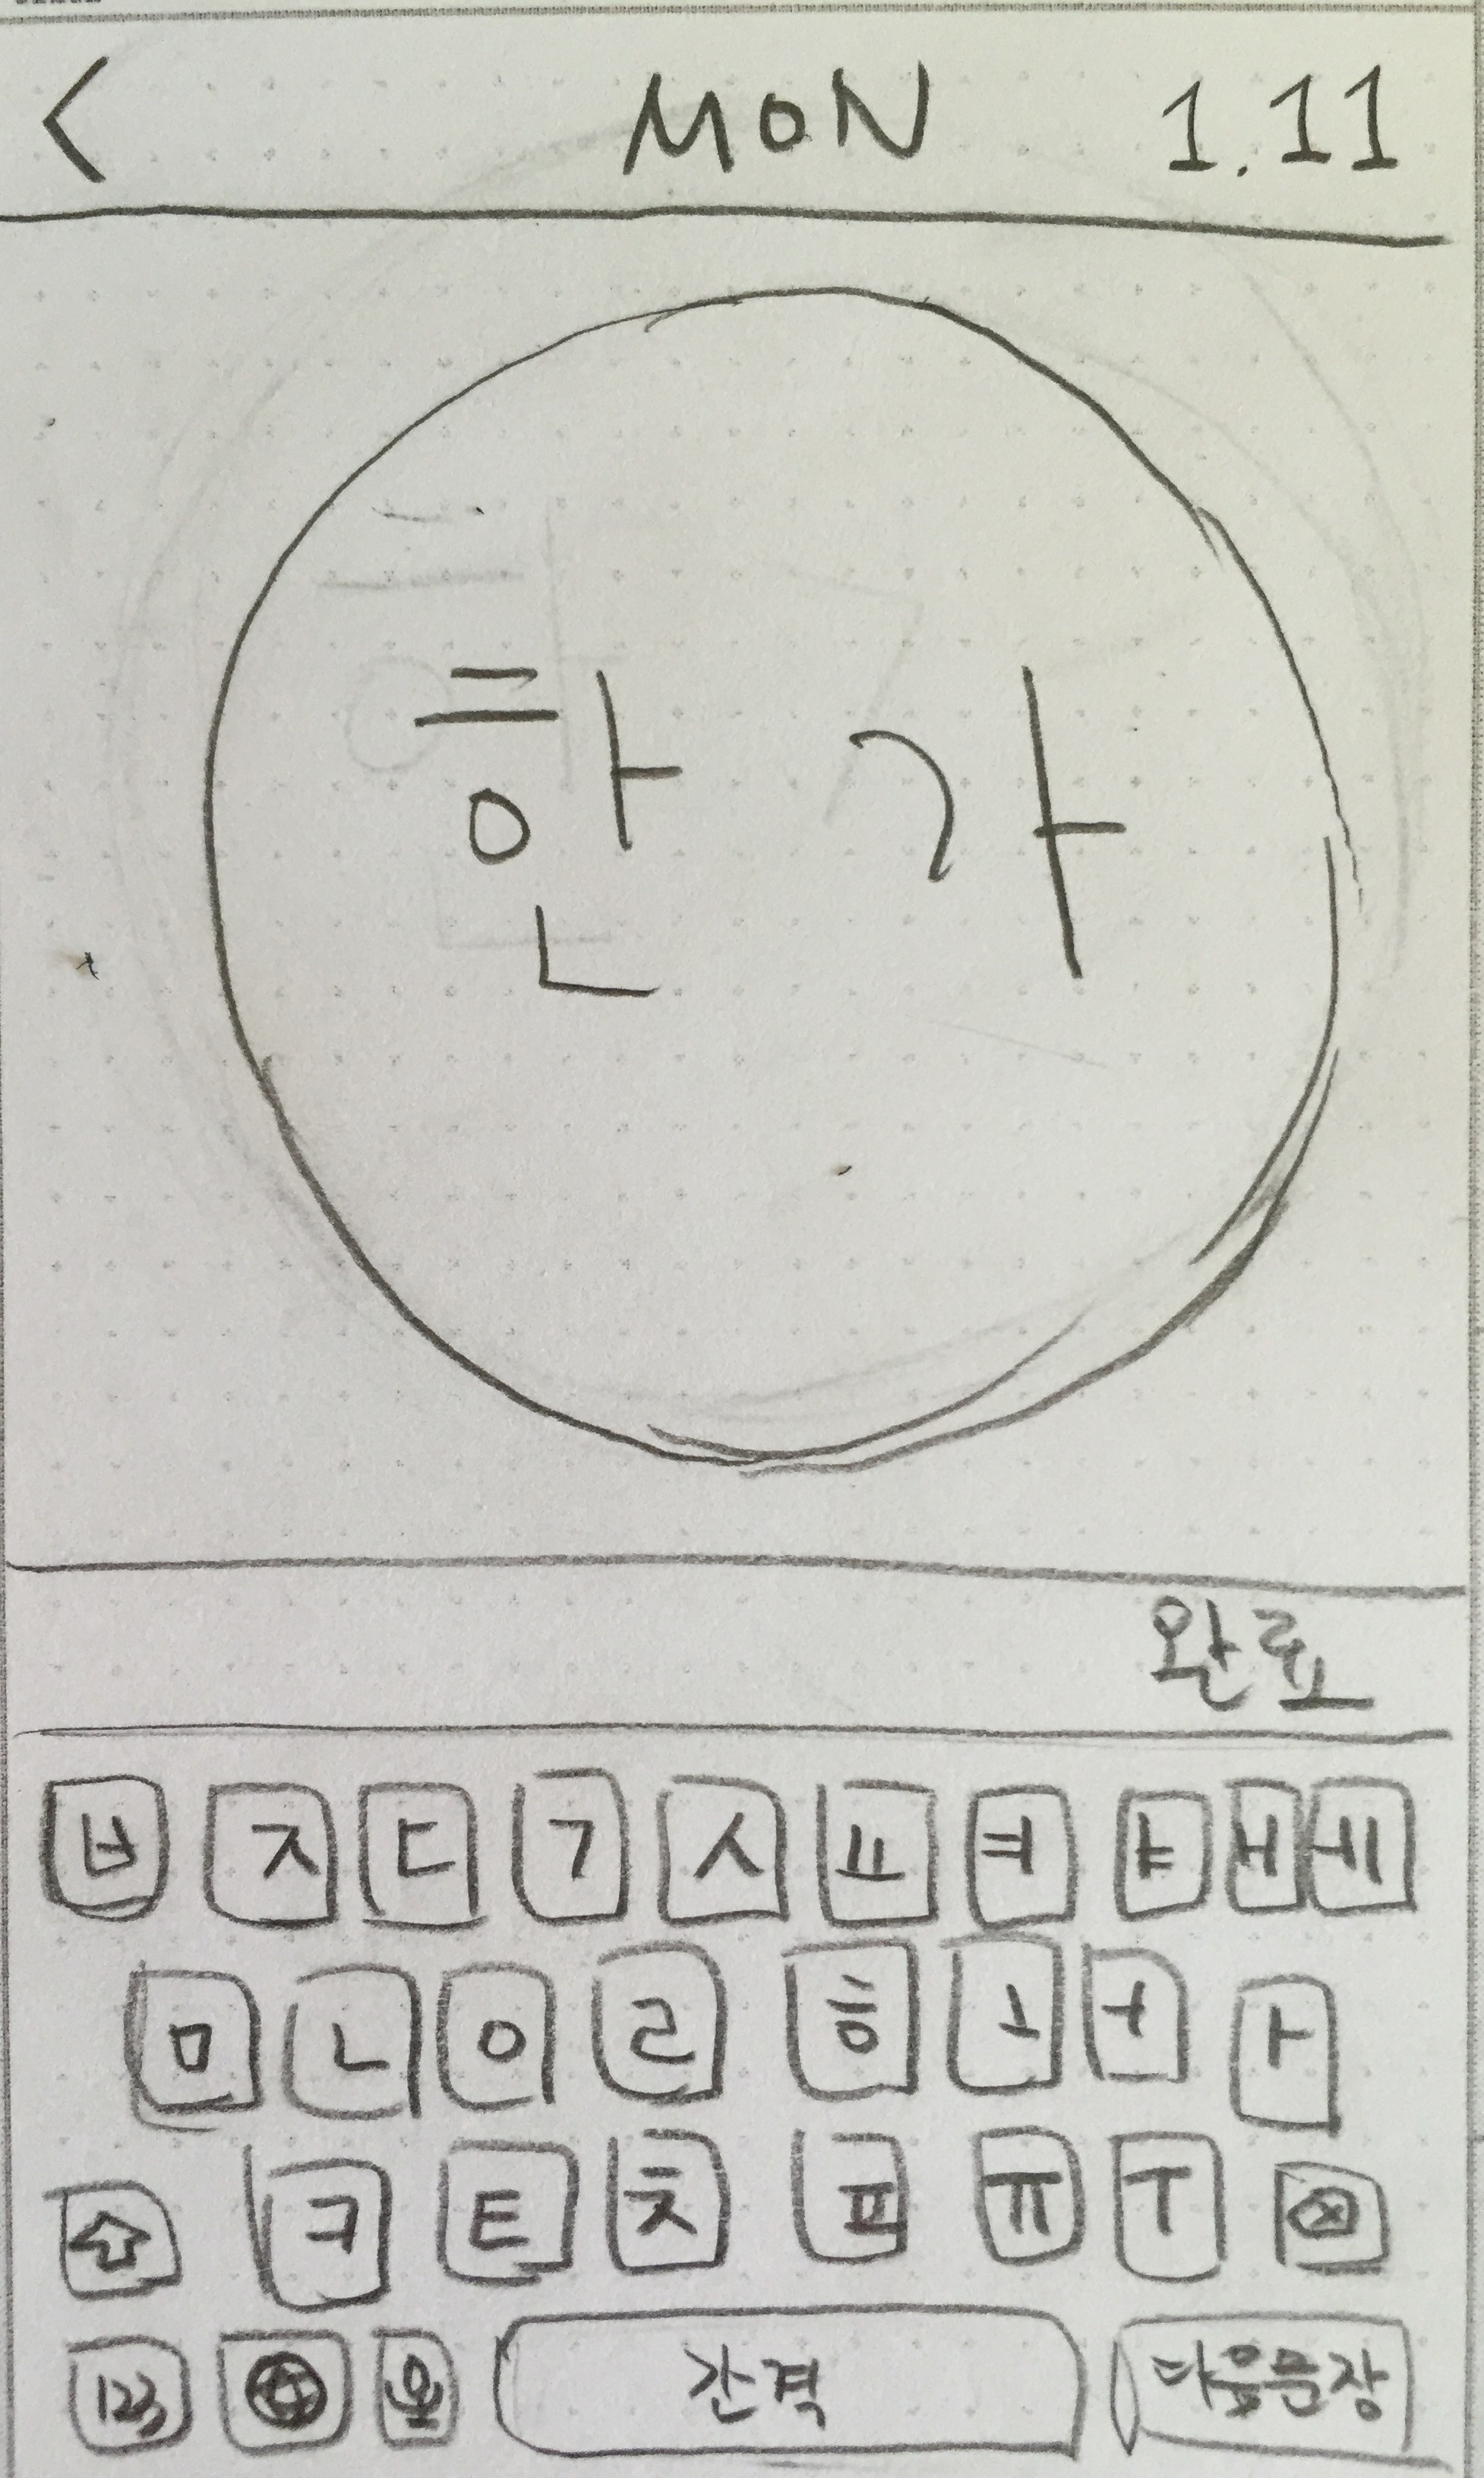 < MON 1.11
한 가
완료
ㅂ ㅈ ㄷ ㄱ ㅅ ㅛ ㅕ ㅑ ㅐ ㅔ
ㅁ ㄴ ㅇ ㄹ ㅎ ㅗ ㅓ ㅏ
ㅋ ㅌ ㅊ ㅍ ㅠ ㅜ
123 간격 다음문장